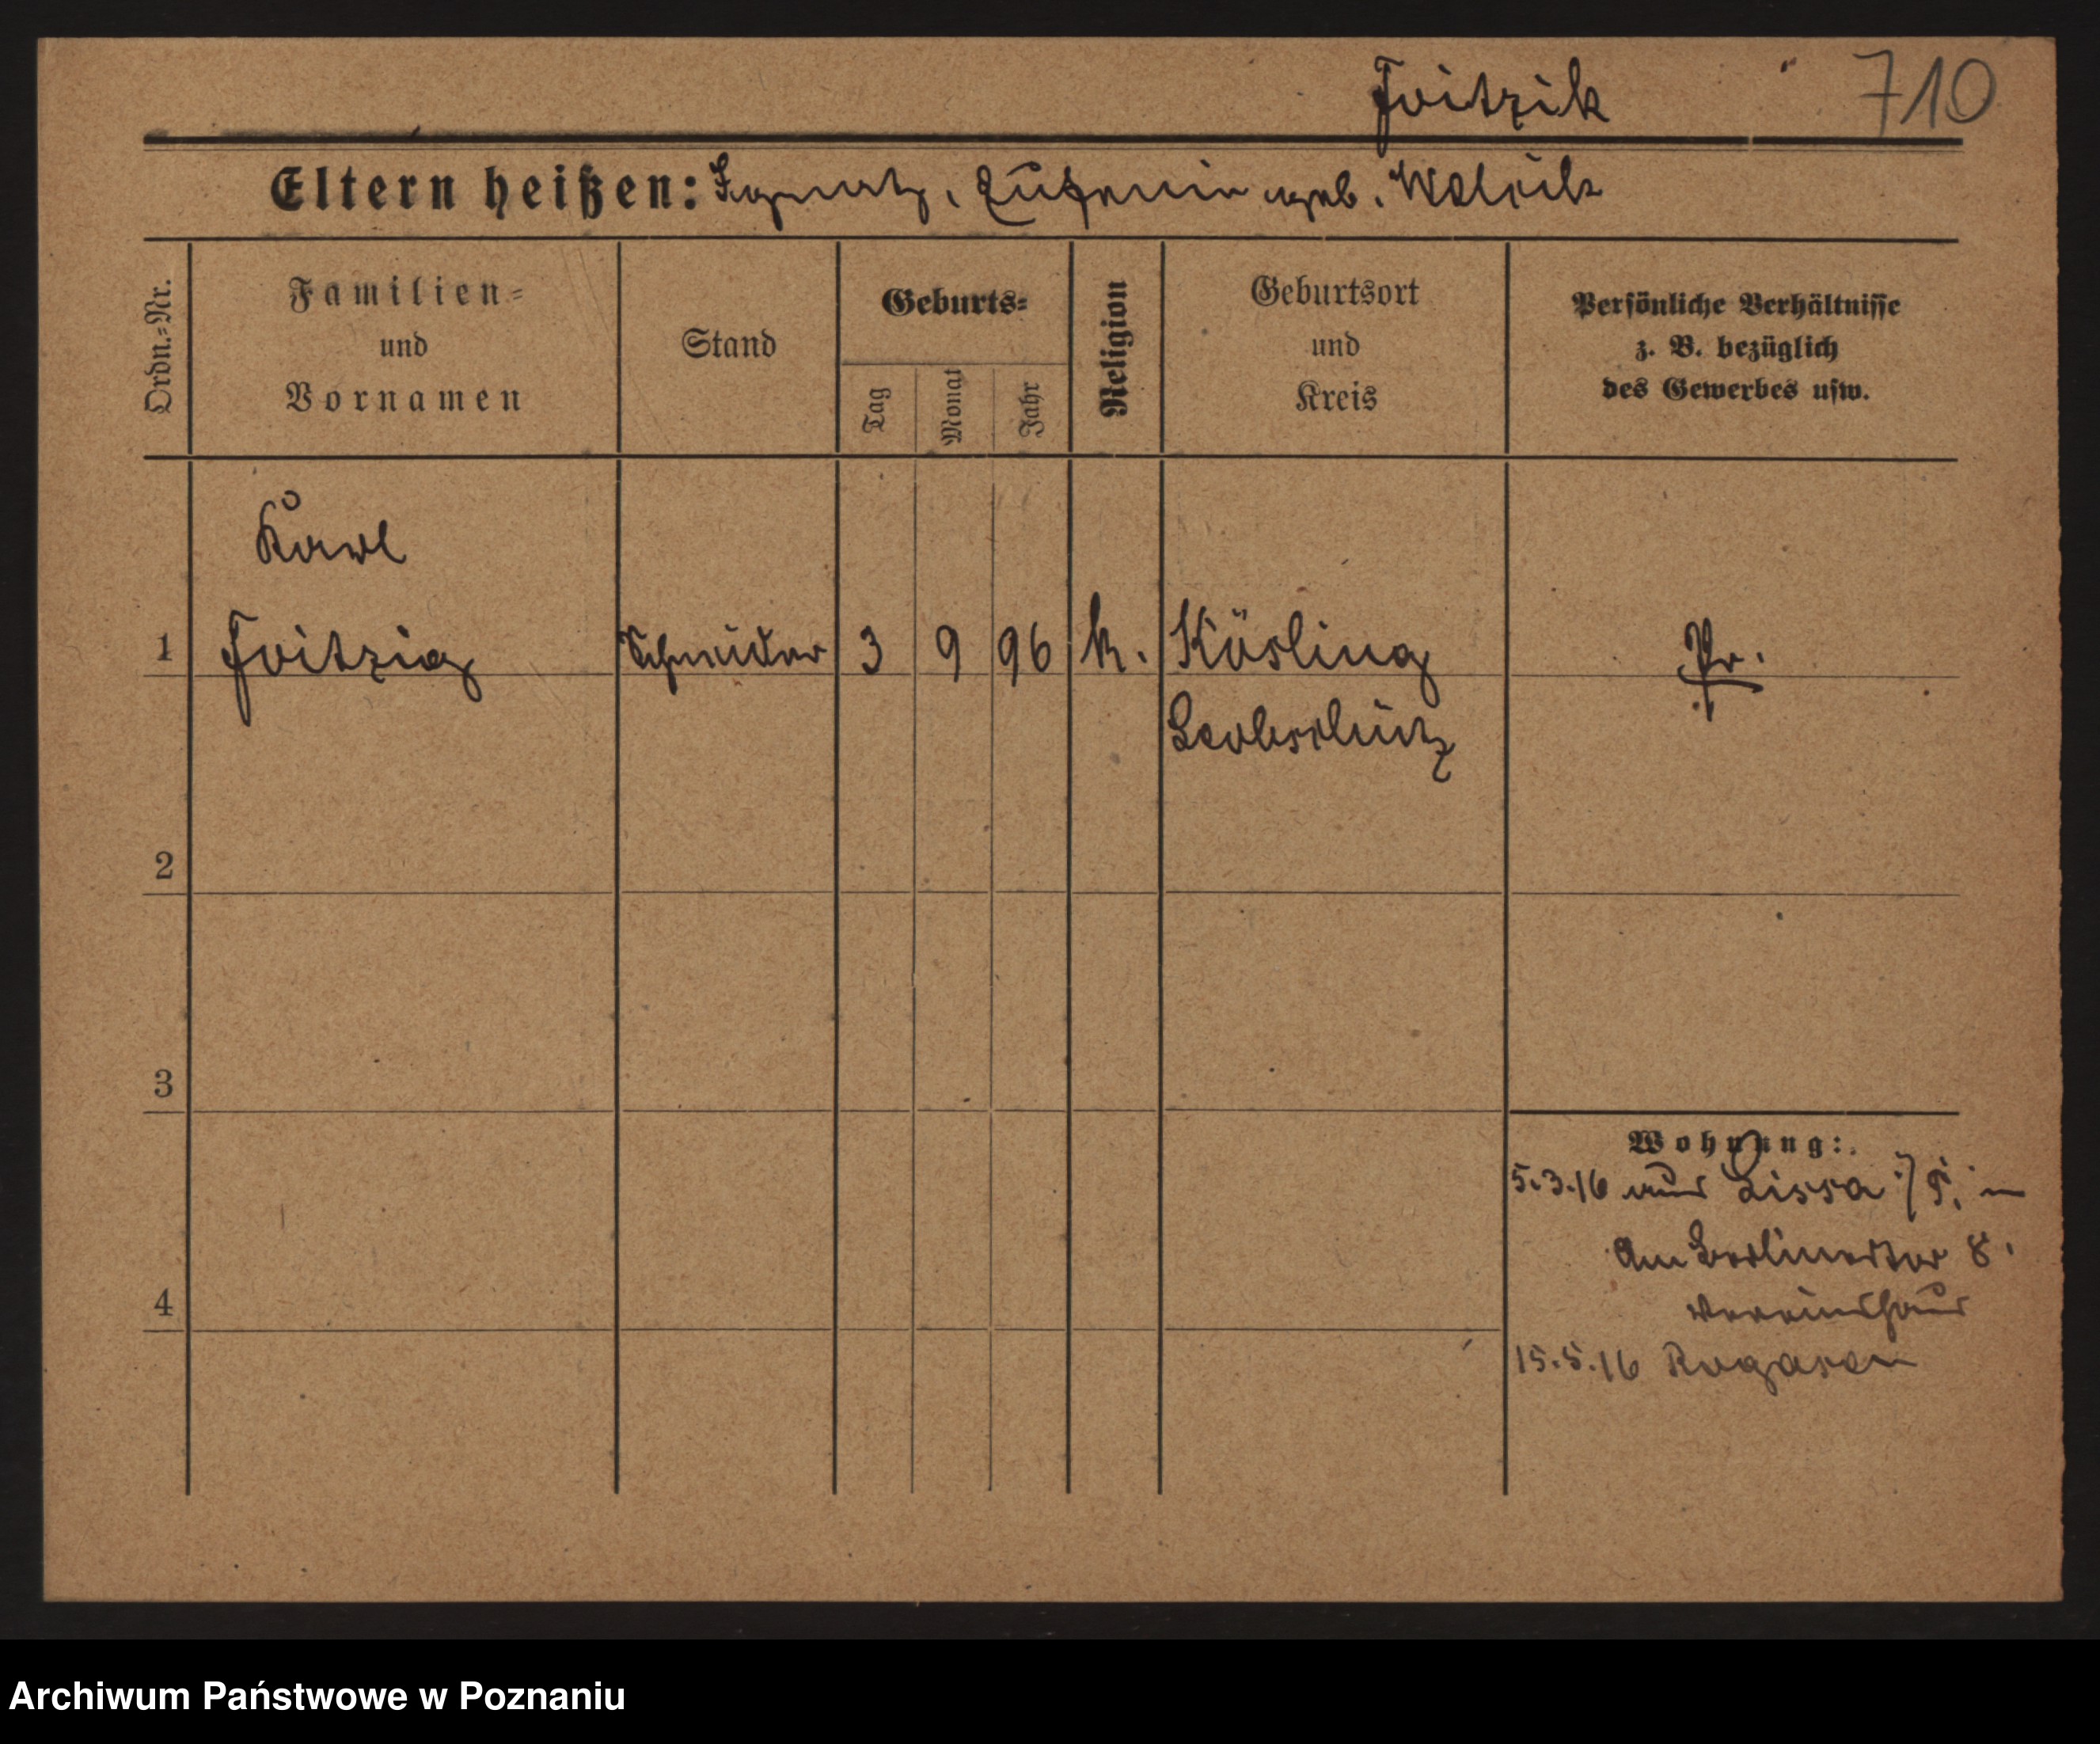 Fritzik 710
Eltern heißen: Ignatz, Eufemie geb. Wolcik
Ordn.=Nr.
Familien=
und
Vornamen
Stand
Geburts=
Tag
Monat
Jahr
Religion
Geburtsort
und
Kreis
Persönliche Verhältnisse
z. B. bezüglich
des Gewerbes usw.
Karl
1 Fritzig Schneider 3 9 96 k. Kösling Pr.
Leobschütz
2
3
Wohnung:
5.3.16 aus Lissa i/P. in
Am Berlinertor 8.
Vereinshaus
4
15.5.16 Rogasen
Archiwum Państwowe w Poznaniu